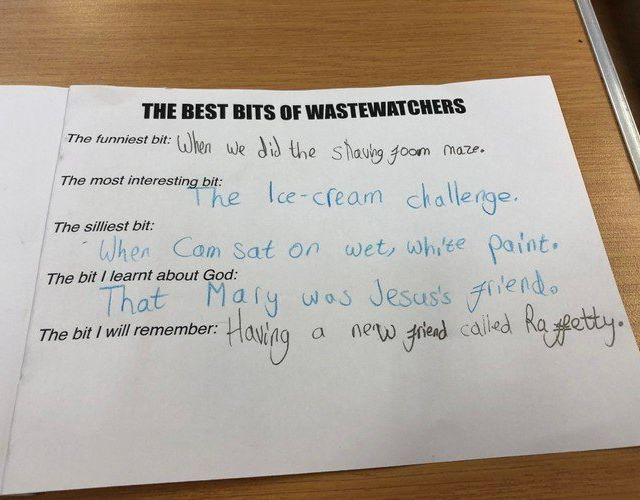 THE BEST BITS OF WASTEWATCHERS
The funniest bit: When we did the shaving foom maze.
The most interesting bit: The Ice-cream challenge.
The silliest bit:
When Cam sat on wet, white paint.
The bit I learnt about God:
That Mary was Jesus's friend.
The bit I will remember: Having a new friend called Raffetty.